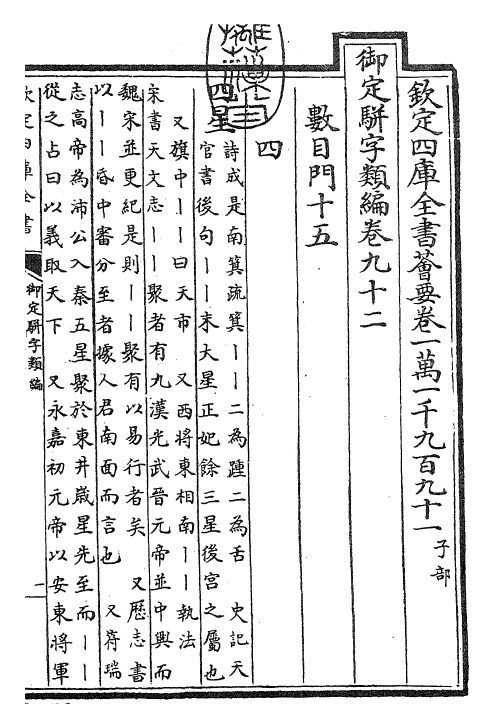 欽定四庫全書薈要卷一萬一千九百九十一 子部
御定駢字類編卷九十二
數目門十五
四
四星 詩成是南箕疏箕丨丨二為踵二為舌 史記天
官書後句丨丨末大星正妃餘三星後宮之屬也
又旗中丨丨曰天市 又西將東相南丨丨執法
宋書天文志丨丨聚者有九漢光武晉元帝並中興而
魏宋並更紀是則丨丨聚有以易行者矣 又歷志書
以丨丨昏中審分至者據人君南面而言也 又符瑞
志高帝為沛公入秦五星聚於東井歲星先至而丨丨
從之占曰以義取天下 又永嘉初元帝以安東將軍
欽定四庫全書
御定駢字類編
一